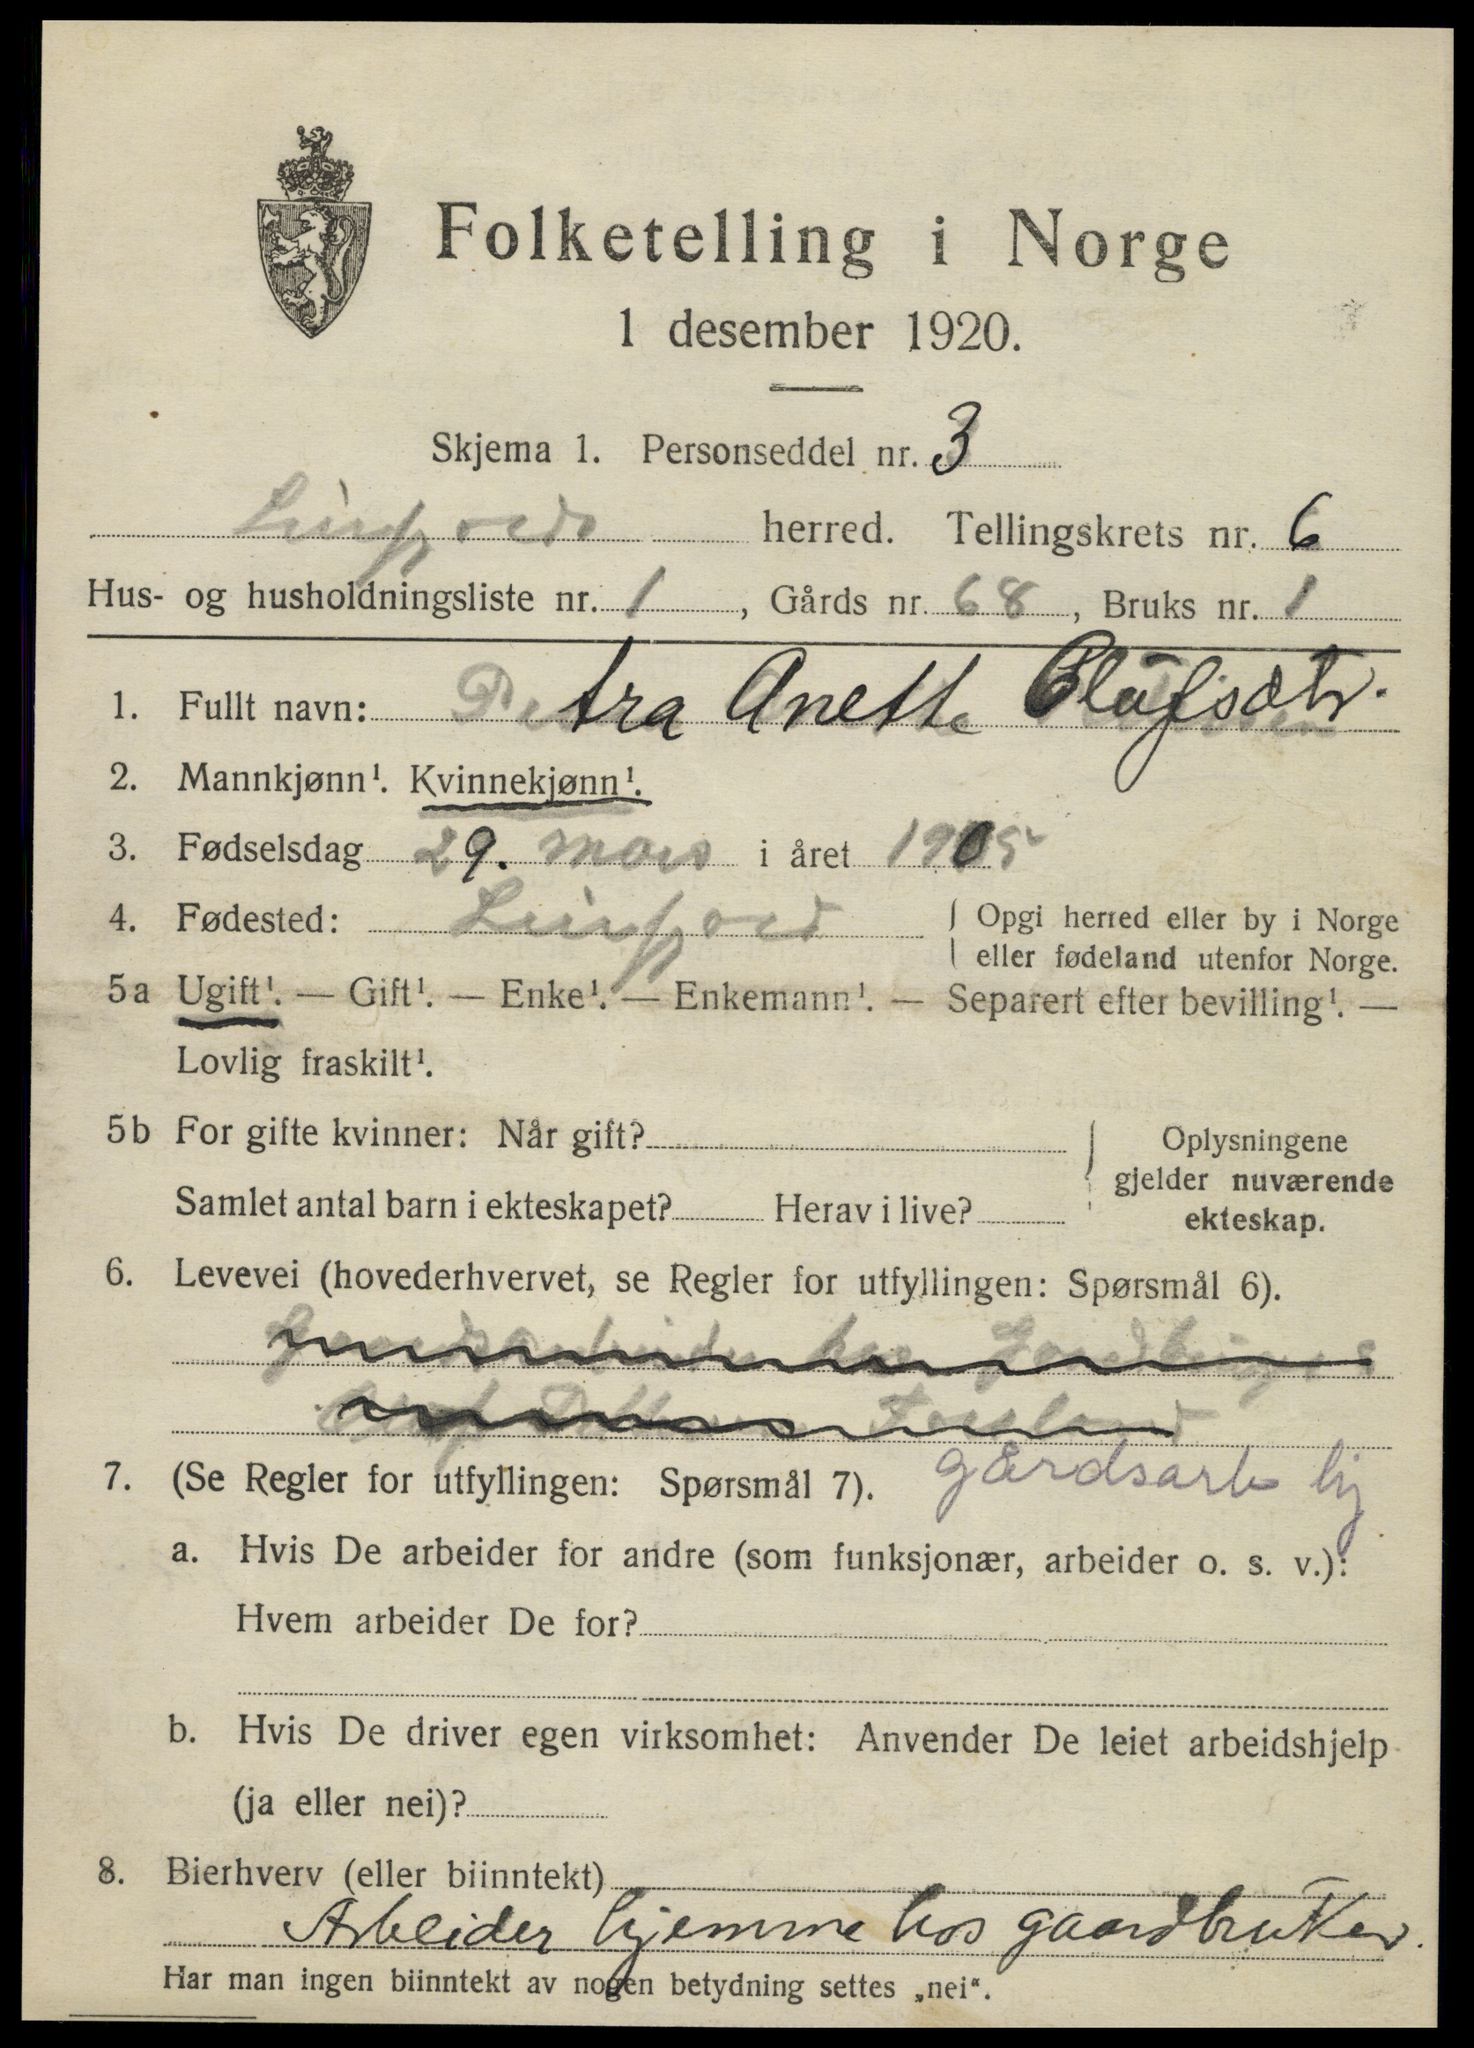 Folketelling i Norge
1 desember 1920.
Skjema 1. Personseddel nr. 3
herred. Tellingskrets nr. 6
Hus- og husholdningsliste nr. 1, Gårds nr. 68, Bruks nr. 1
1. Fullt navn: Petra Anette Olufsdtr.
2. Mannkjønn¹. Kvinnekjønn¹.
3. Fødselsdag 29. mars i året 1905
4. Fødested: Opgi herred eller by i Norge
eller fødeland utenfor Norge.
5a Ugift¹. — Gift¹. — Enke¹. — Enkemann¹. — Separert efter bevilling¹. —
Lovlig fraskilt¹.
5b For gifte kvinner: Når gift?
Samlet antal barn i ekteskapet? Herav i live?
Oplysningene
gjelder nuværende
ekteskap.
6. Levevei (hovederhvervet, se Regler for utfyllingen: Spørsmål 6).
7. (Se Regler for utfyllingen: Spørsmål 7). gårdsarb hj
a. Hvis De arbeider for andre (som funksjonær, arbeider o. s. v.):
Hvem arbeider De for?
b. Hvis De driver egen virksomhet: Anvender De leiet arbeidshjelp
(ja eller nei)?
8. Bierhverv (eller biinntekt)
Arbeider hjemme hos gaardbruker.
Har man ingen biinntekt av nogen betydning settes „nei“.